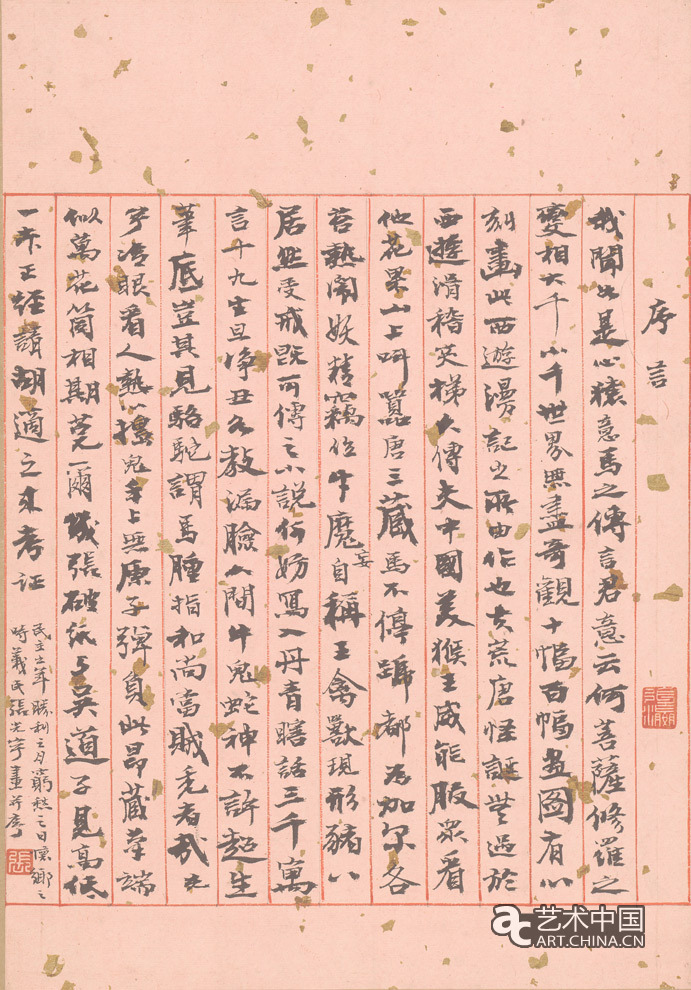 序言
我聞如是心猿意馬之傳言君意云何菩薩修羅之
變相大千小千世界無盡奇觀十幅百幅畫圖有心
刻畫此西遊漫記之所由作也夫荒唐怪誕無過於
西遊滑稽英梯大傳夫中國美猴王威能服眾看
他花果山上叫囂唐三藏馬不停蹄都為加尔各
答熱鬧妖精竊位牛魔妄自稱王禽獸現形豬八
居然受戒既可傳之小說何妨寫入丹青瞎話三千寓
言十九生旦净丑各教漏臉人間牛鬼蛇神不許超生
筆底豈其見駱駝謂馬腫指和尚當賊禿者哉光
宇冷眼看人熱心摟兒手上無康子彈負此昂藏筆端
似萬花筒相期莞爾幾張破紙與吳道子見高低
一卡正經請胡適之來考证
民主士年勝利之月窮愁之日懷鄉之
時義民張光宇畫并序
張
艺术中国
ART.CHINA.CN